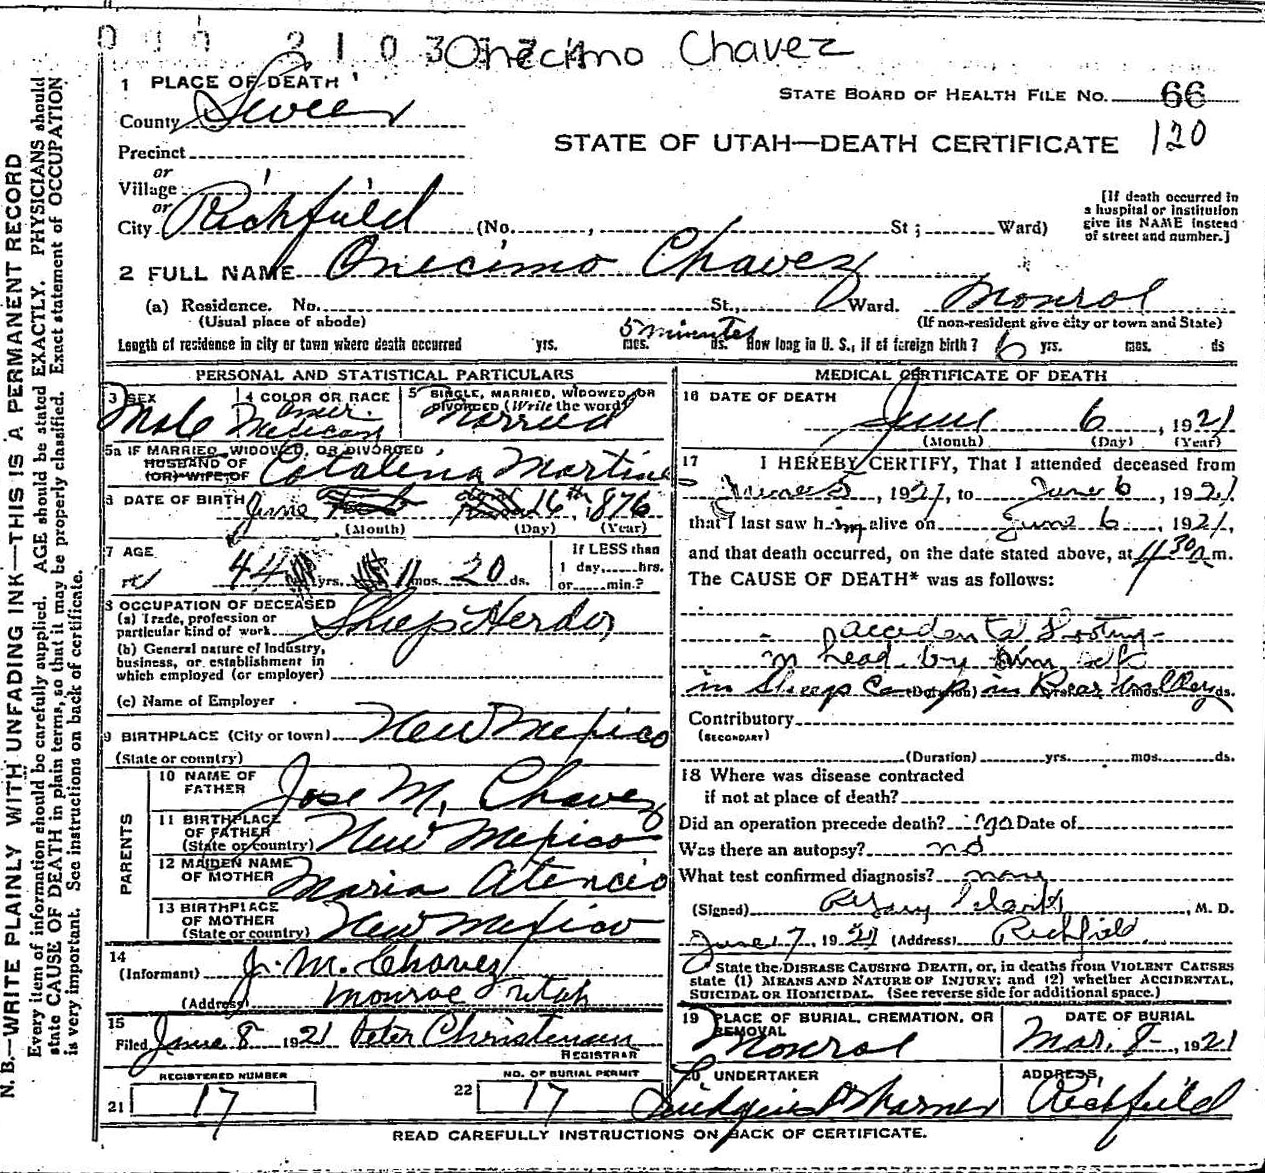 Onecimo Chavez
1 PLACE OF DEATH
County Sevier
STATE BOARD OF HEALTH FILE NO. 66
120
Precinct
STATE OF UTAH—DEATH CERTIFICATE
or
Village
or
City Richfield (No. , St; Ward)
[If death occurred in
a hospital or institution
give its NAME instead
of street and number.]
2 FULL NAME Onecimo Chavez
(a) Residence. No. St., Ward. Monroe
(Usual place of abode) (If non-resident give city or town and State)
Length of residence in city or town where death occurred yrs. mos. 5 minutes ds. How long in U. S., if of foreign birth? 6 yrs. mos. ds
PERSONAL AND STATISTICAL PARTICULARS
3 SEX Male
4 COLOR OR RACE Amer. Mexican
5 SINGLE, MARRIED, WIDOWED, OR
DIVORCED (Write the word) Married
5a IF MARRIED, WIDOWED, OR DIVORCED
HUSBAND OF
(OR) WIFE OF Catalina Martine
6 DATE OF BIRTH June 16th, 1876
(Month) (Day) (Year)
7 AGE 44 yrs. 11 mos. 20 ds.
If LESS than
1 day,......hrs.
or......min.?
8 OCCUPATION OF DECEASED
(a) Trade, profession or
particular kind of work Sheep Herder
(b) General nature of Industry,
business, or establishment in
which employed (or employer)
(c) Name of Employer
9 BIRTHPLACE (City or town) New Mexico
(State or country)
PARENTS
10 NAME OF
FATHER Jose M. Chavez
11 BIRTHPLACE
OF FATHER
(State or country) New Mexico
12 MAIDEN NAME
OF MOTHER Maria Atencio
13 BIRTHPLACE
OF MOTHER
(State or country) New Mexico
14
(Informant) J. M. Chavez
(Address) Monroe Utah
15
Filed June 8 1921 Peter Christensen
REGISTRAR
REGISTERED NUMBER
21 17
NO. OF BURIAL PERMIT
22 17
MEDICAL CERTIFICATE OF DEATH
16 DATE OF DEATH
June 6, 1921
(Month) (Day) (Year)
17 I HEREBY CERTIFY, That I attended deceased from
June 5, 1921, to June 6, 1921
that I last saw him alive on June 6, 1921,
and that death occurred, on the date stated above, at 4 30 a m.
The CAUSE OF DEATH* was as follows:
accidental Shooting
in head by him self
in Sheep Camp in Bear valley
(Duration) yrs. mos. ds.
Contributory
(SECONDARY)
(Duration) yrs. mos. ds.
18 Where was disease contracted
if not at place of death?
Did an operation precede death? no Date of
Was there an autopsy? no
What test confirmed diagnosis? none
(Signed) , M. D.
June 7, 1921 (Address) Richfield
* State the DISEASE CAUSING DEATH, or, in deaths from VIOLENT CAUSES
state (1) MEANS AND NATURE OF INJURY; and (2) whether ACCIDENTAL,
SUICIDAL OR HOMICIDAL. (See reverse side for additional space.)
19 PLACE OF BURIAL, CREMATION, OR
REMOVAL
Monroe
DATE OF BURIAL
Mar. 8-, 1921
20 UNDERTAKER
ADDRESS,
Richfield
READ CAREFULLY INSTRUCTIONS ON BACK OF CERTIFICATE.
N. B.—WRITE PLAINLY WITH UNFADING INK—THIS IS A PERMANENT RECORD
Every item of information should be carefully supplied. AGE should be stated EXACTLY. PHYSICIANS should
state CAUSE OF DEATH in plain terms, so that it may be properly classified. Exact statement of OCCUPATION
is very important. See instructions on back of certificate.